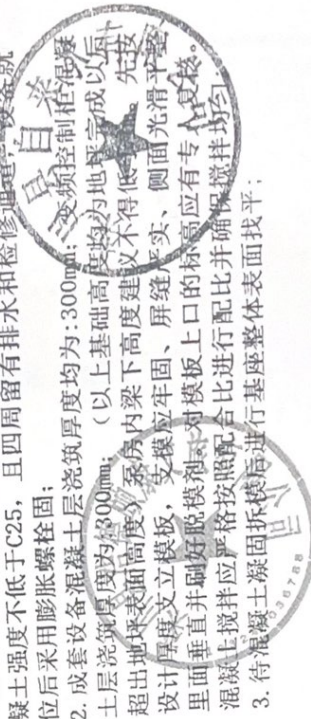 凝土强度不低于C25，且四周留有排水和检修通道，设备就
位后采用膨胀螺栓固；
2. 成套设备混凝土层浇筑厚度均为:300mm；变频控制柜混凝
土层浇筑厚度为:300mm；（以上基础高度均为地坪完成以后
超出地坪表面高度），泵房内梁下高度建议不得低 先按
设计厚度支立模板，支撑应牢固、屏缝严实、侧面光滑平整
里面垂直并刷好脱模剂。对模板上口的标高应有专人复核。
混凝土搅拌应严格按照配合比进行配比并确保搅拌均匀.
3. 待混凝土凝固拆模后进行基座整体表面找平；
036788